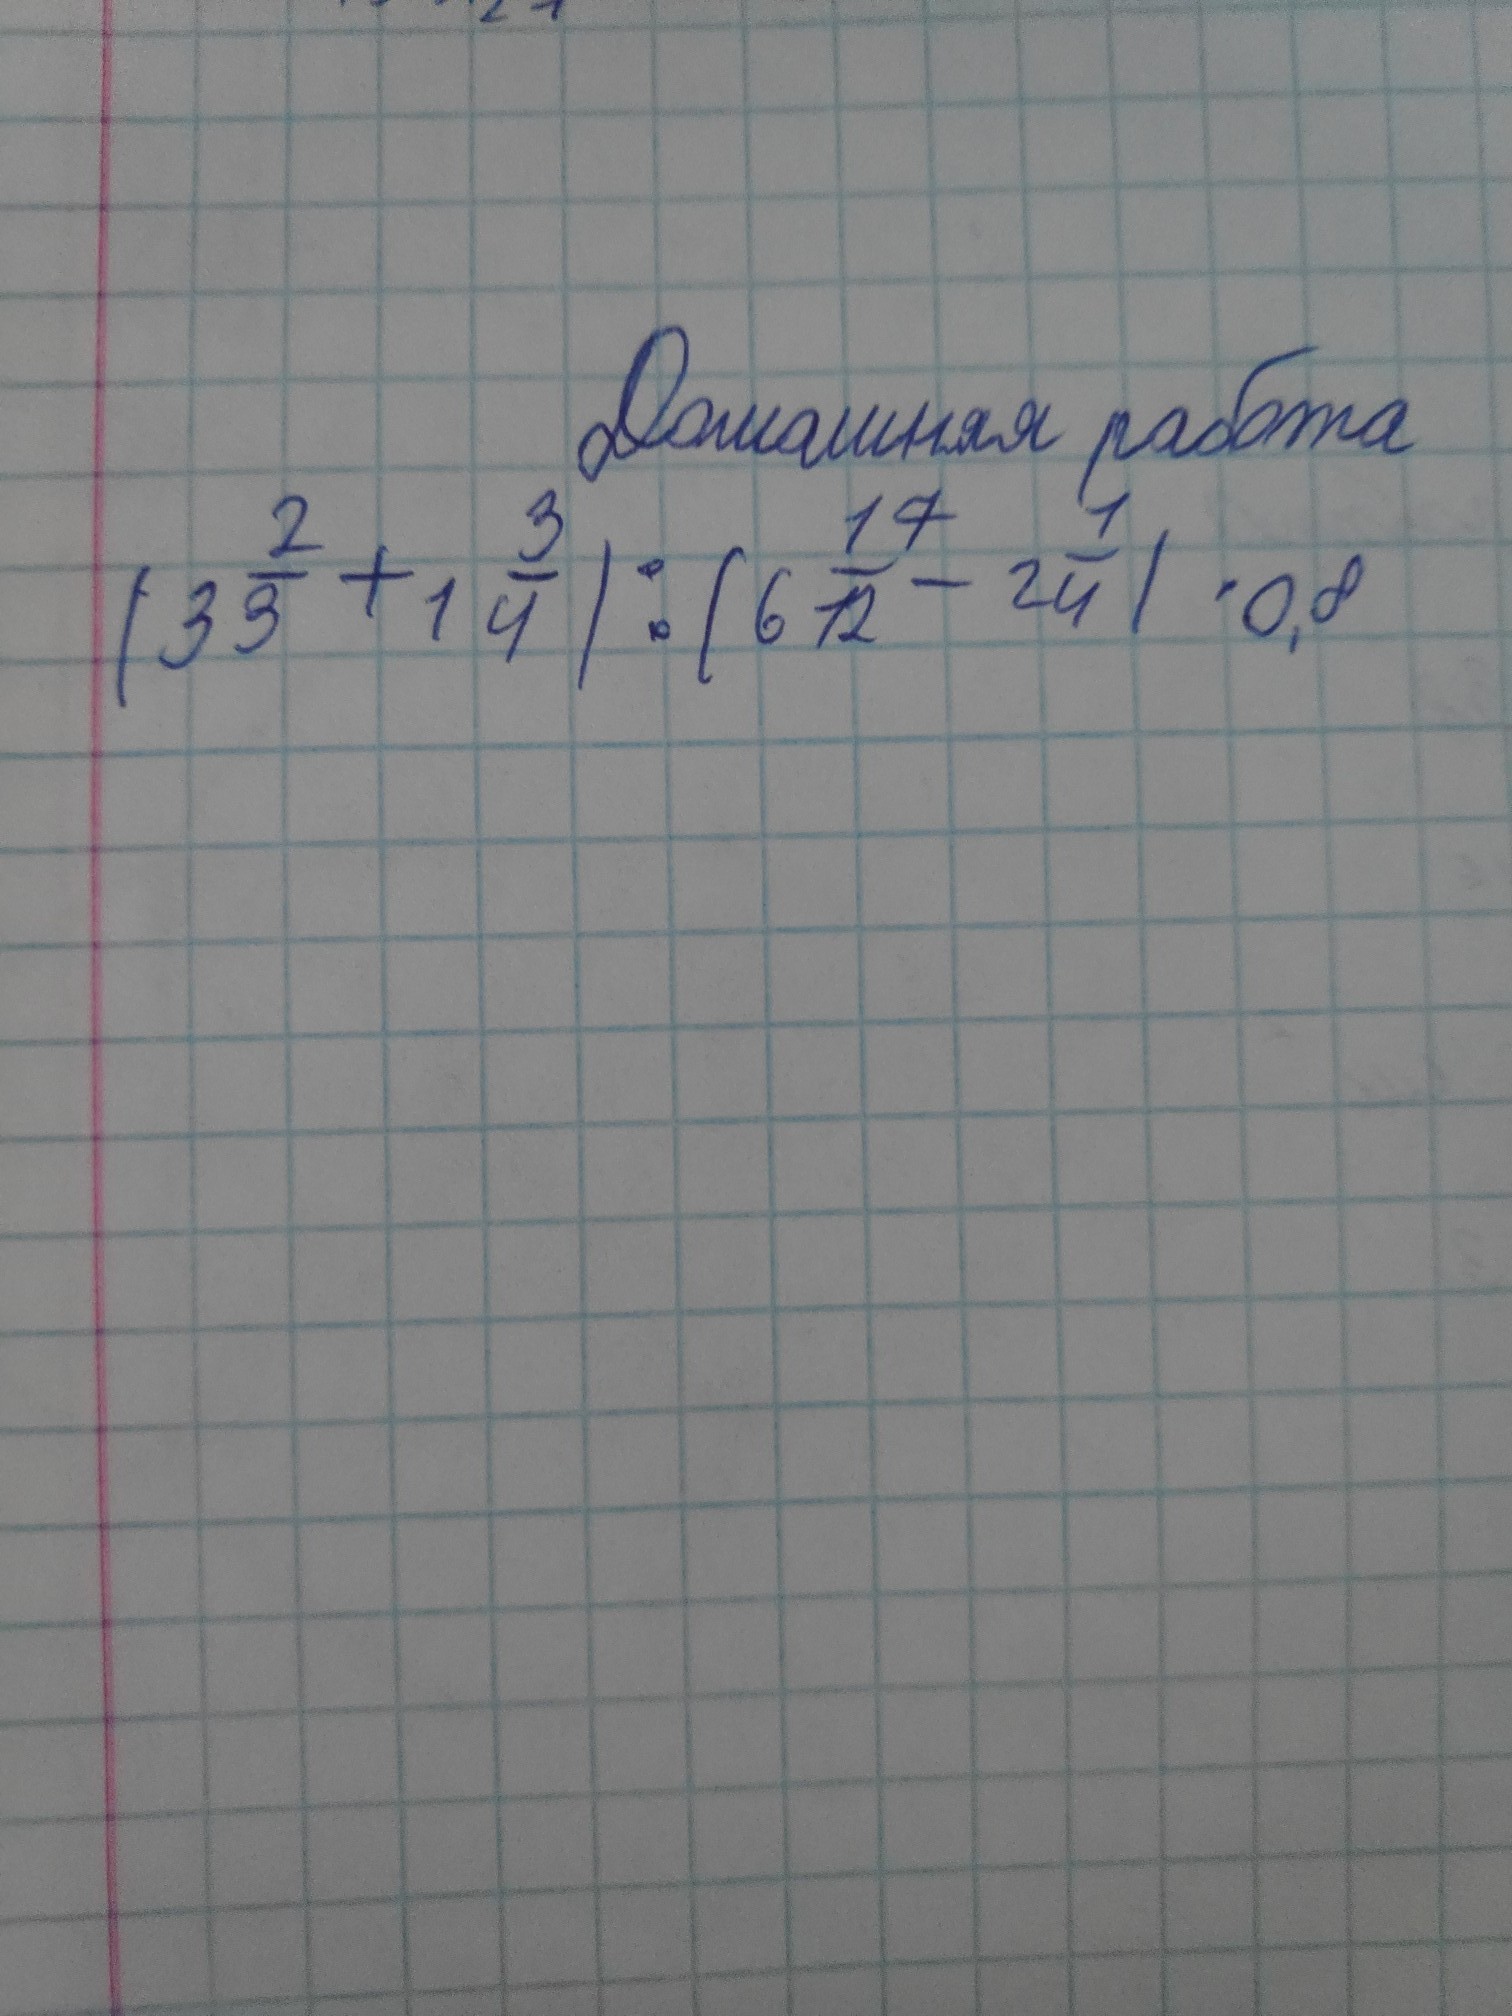 Домашняя работа
(3 2/3 + 1 3/4) : (6 17/12 - 2 1/4) · 0,8